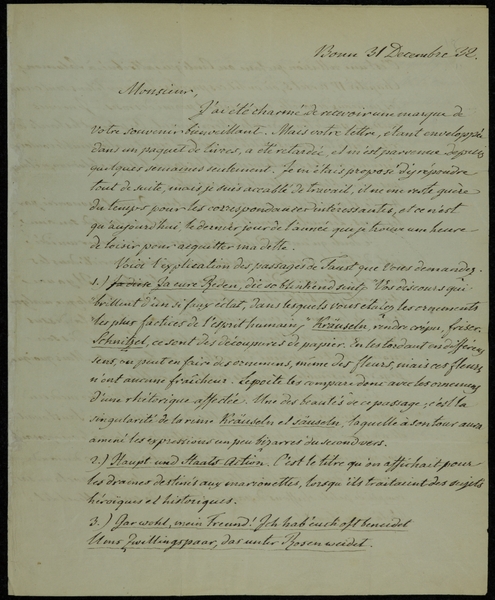 Bonn 31 Decembre 32.
Monsieur,
J'ai été charmé de recevoir une marque de
votre souvenir bienveillant. Mais votre lettre, étant enveloppée
dans un paquet de livres, a été retardée, et m'est parvenue depuis
quelques semaines seulement. Je m'étais proposé d'y répondre
tout de suite, mais je suis accablé de travail, il ne me reste guère
du temps pour les correspondances intéressantes, et ce n'est
qu'aujourd'hui le dernier jour de l'année que je trouve une heure
de loisir pour acquitter ma dette.
Voici l'explication des passages de Faust que Vous demandez.
1.) Ja eure Reden, die so blinkend sind, "Vos discours qui
brillent d'un si faux éclat, dans lesquels vous les ornements
les plus factices de l'esprit humain," Kräuseln, rendre crépu, friser.
Schnitzel, ce sont des découpures de papier. En les tordant en différens
sens, on peut en faire des ornemens, même des fleurs, mais ces fleurs
n'ont aucune fraîcheur. Le poëte les compare donc avec les ornemens
d'une rhétorique affectée. Une des beautés de ce passage, c'est la
singularité de la rime Kräuseln et säuseln, laquelle à son tour aura
amené les expressions un peu bizarres du second vers.
2.) Haupt und Staats Action. C'est le titre qu'on affichait pour
les drames destinés aux marionettes, lorsqu'ils traitaient des sujets
héroïques et historiques.
3.) Gar wohl, mein Freund! Ich hab' euch oft beneidet
Ums Zwillingspaar, das unter Rosen weidet.